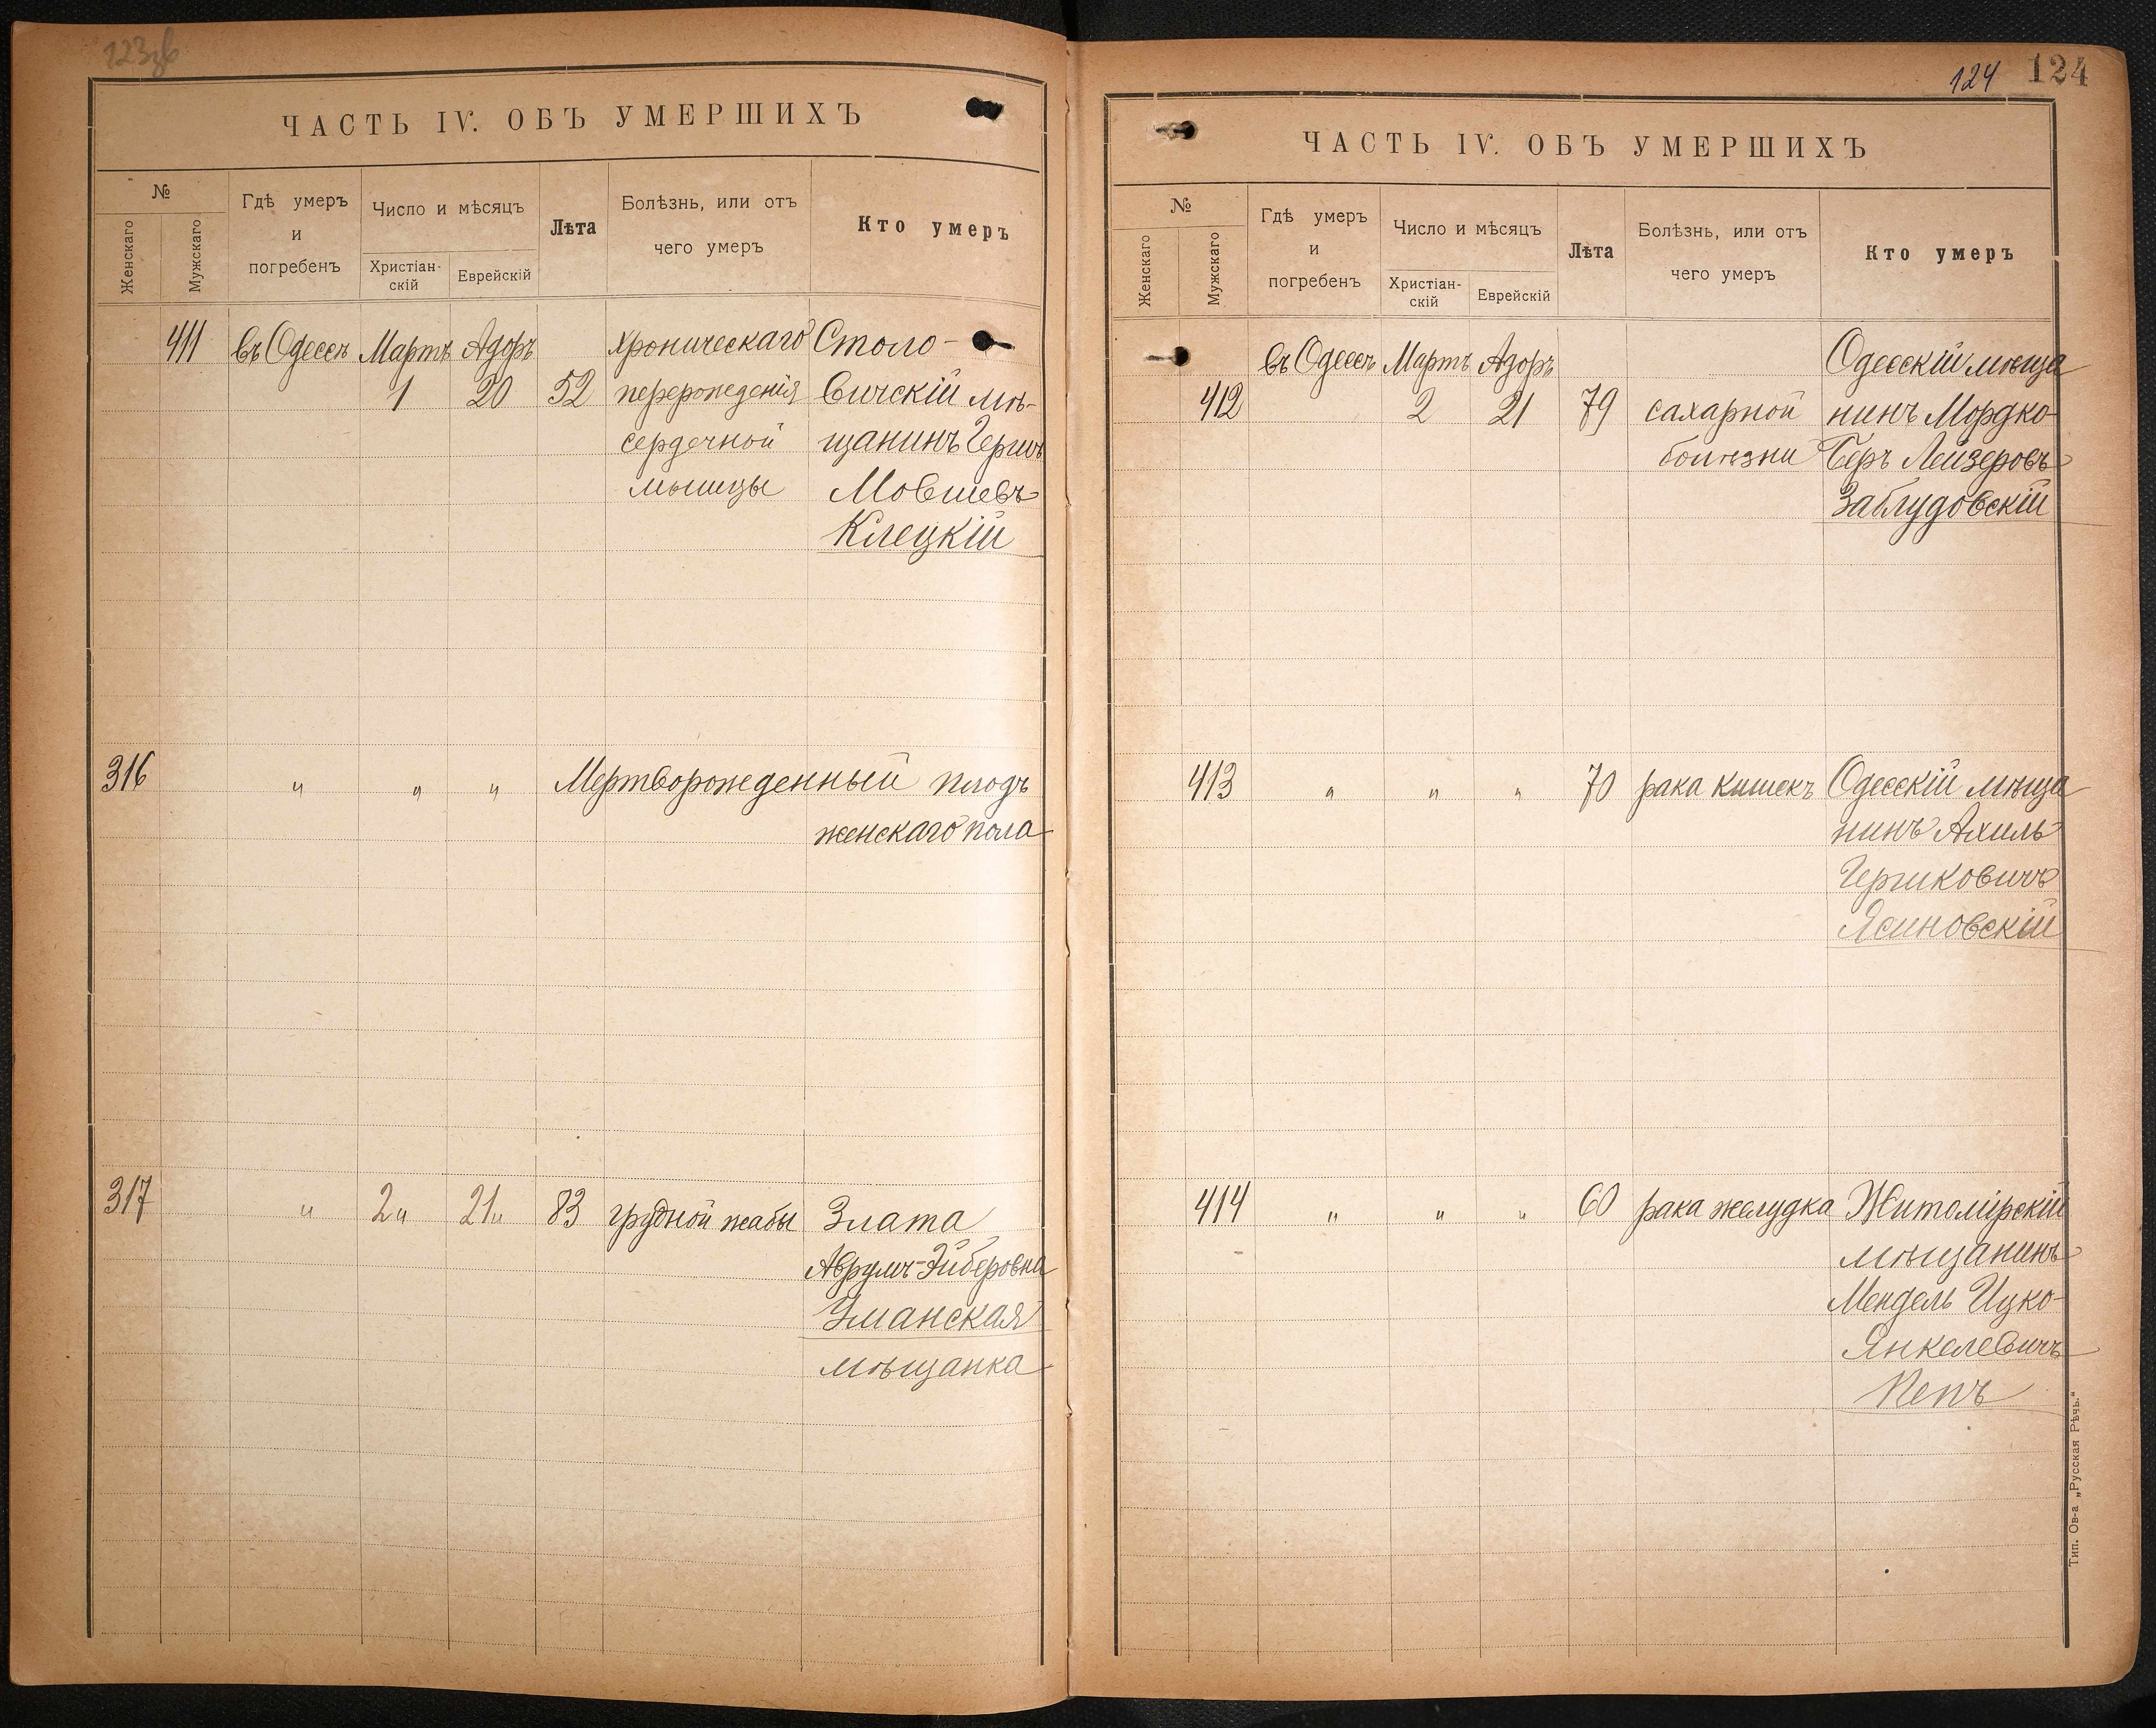 ЧАСТЬ IV. ОБЪ УМЕРШИХЪ
№
Женскаго
Мужскаго
Гдѣ умеръ
и
погребенъ
Число и мѣсяцъ
Христіан-
скій
Еврейскій
Лѣта
Болѣзнь, или отъ
чего умеръ
Кто умеръ
411 въ Одессѣ Мартъ Адоръ хроническаго Столо-
1 20 52 перерожденія вичскій мѣ-
сердечной щанинъ Гершъ
мышцы Мовшевъ
Клецкій
316 " " " Мертворожденный плодъ
женскаго пола
317 " 2" 21" 83 грудной жабы Злата
Аврумъ-Эйберовна
Уманская
мѣщанка
124 124
ЧАСТЬ IV. ОБЪ УМЕРШИХЪ
№
Женскаго
Мужскаго
Гдѣ умеръ
и
погребенъ
Число и мѣсяцъ
Христіан-
скій
Еврейскій
Лѣта
Болѣзнь, или отъ
чего умеръ
Кто умеръ
въ Одессѣ Мартъ Адоръ Одесскій мѣща
412 2 21 79 сахарной нинъ Мордко-
болѣзни Беръ Лейзеровъ
Заблудовскій
413 " " " 70 рака кишекъ Одесскій мѣща
нинъ Ахиль
Гершковичъ
Ясиновскій
414 " " " 60 рака желудка Житомірскій
мѣщанинъ
Мендель Ицко-
Янкелевичъ
Кепъ
Тип. Ов-а „Русская Рѣчь."